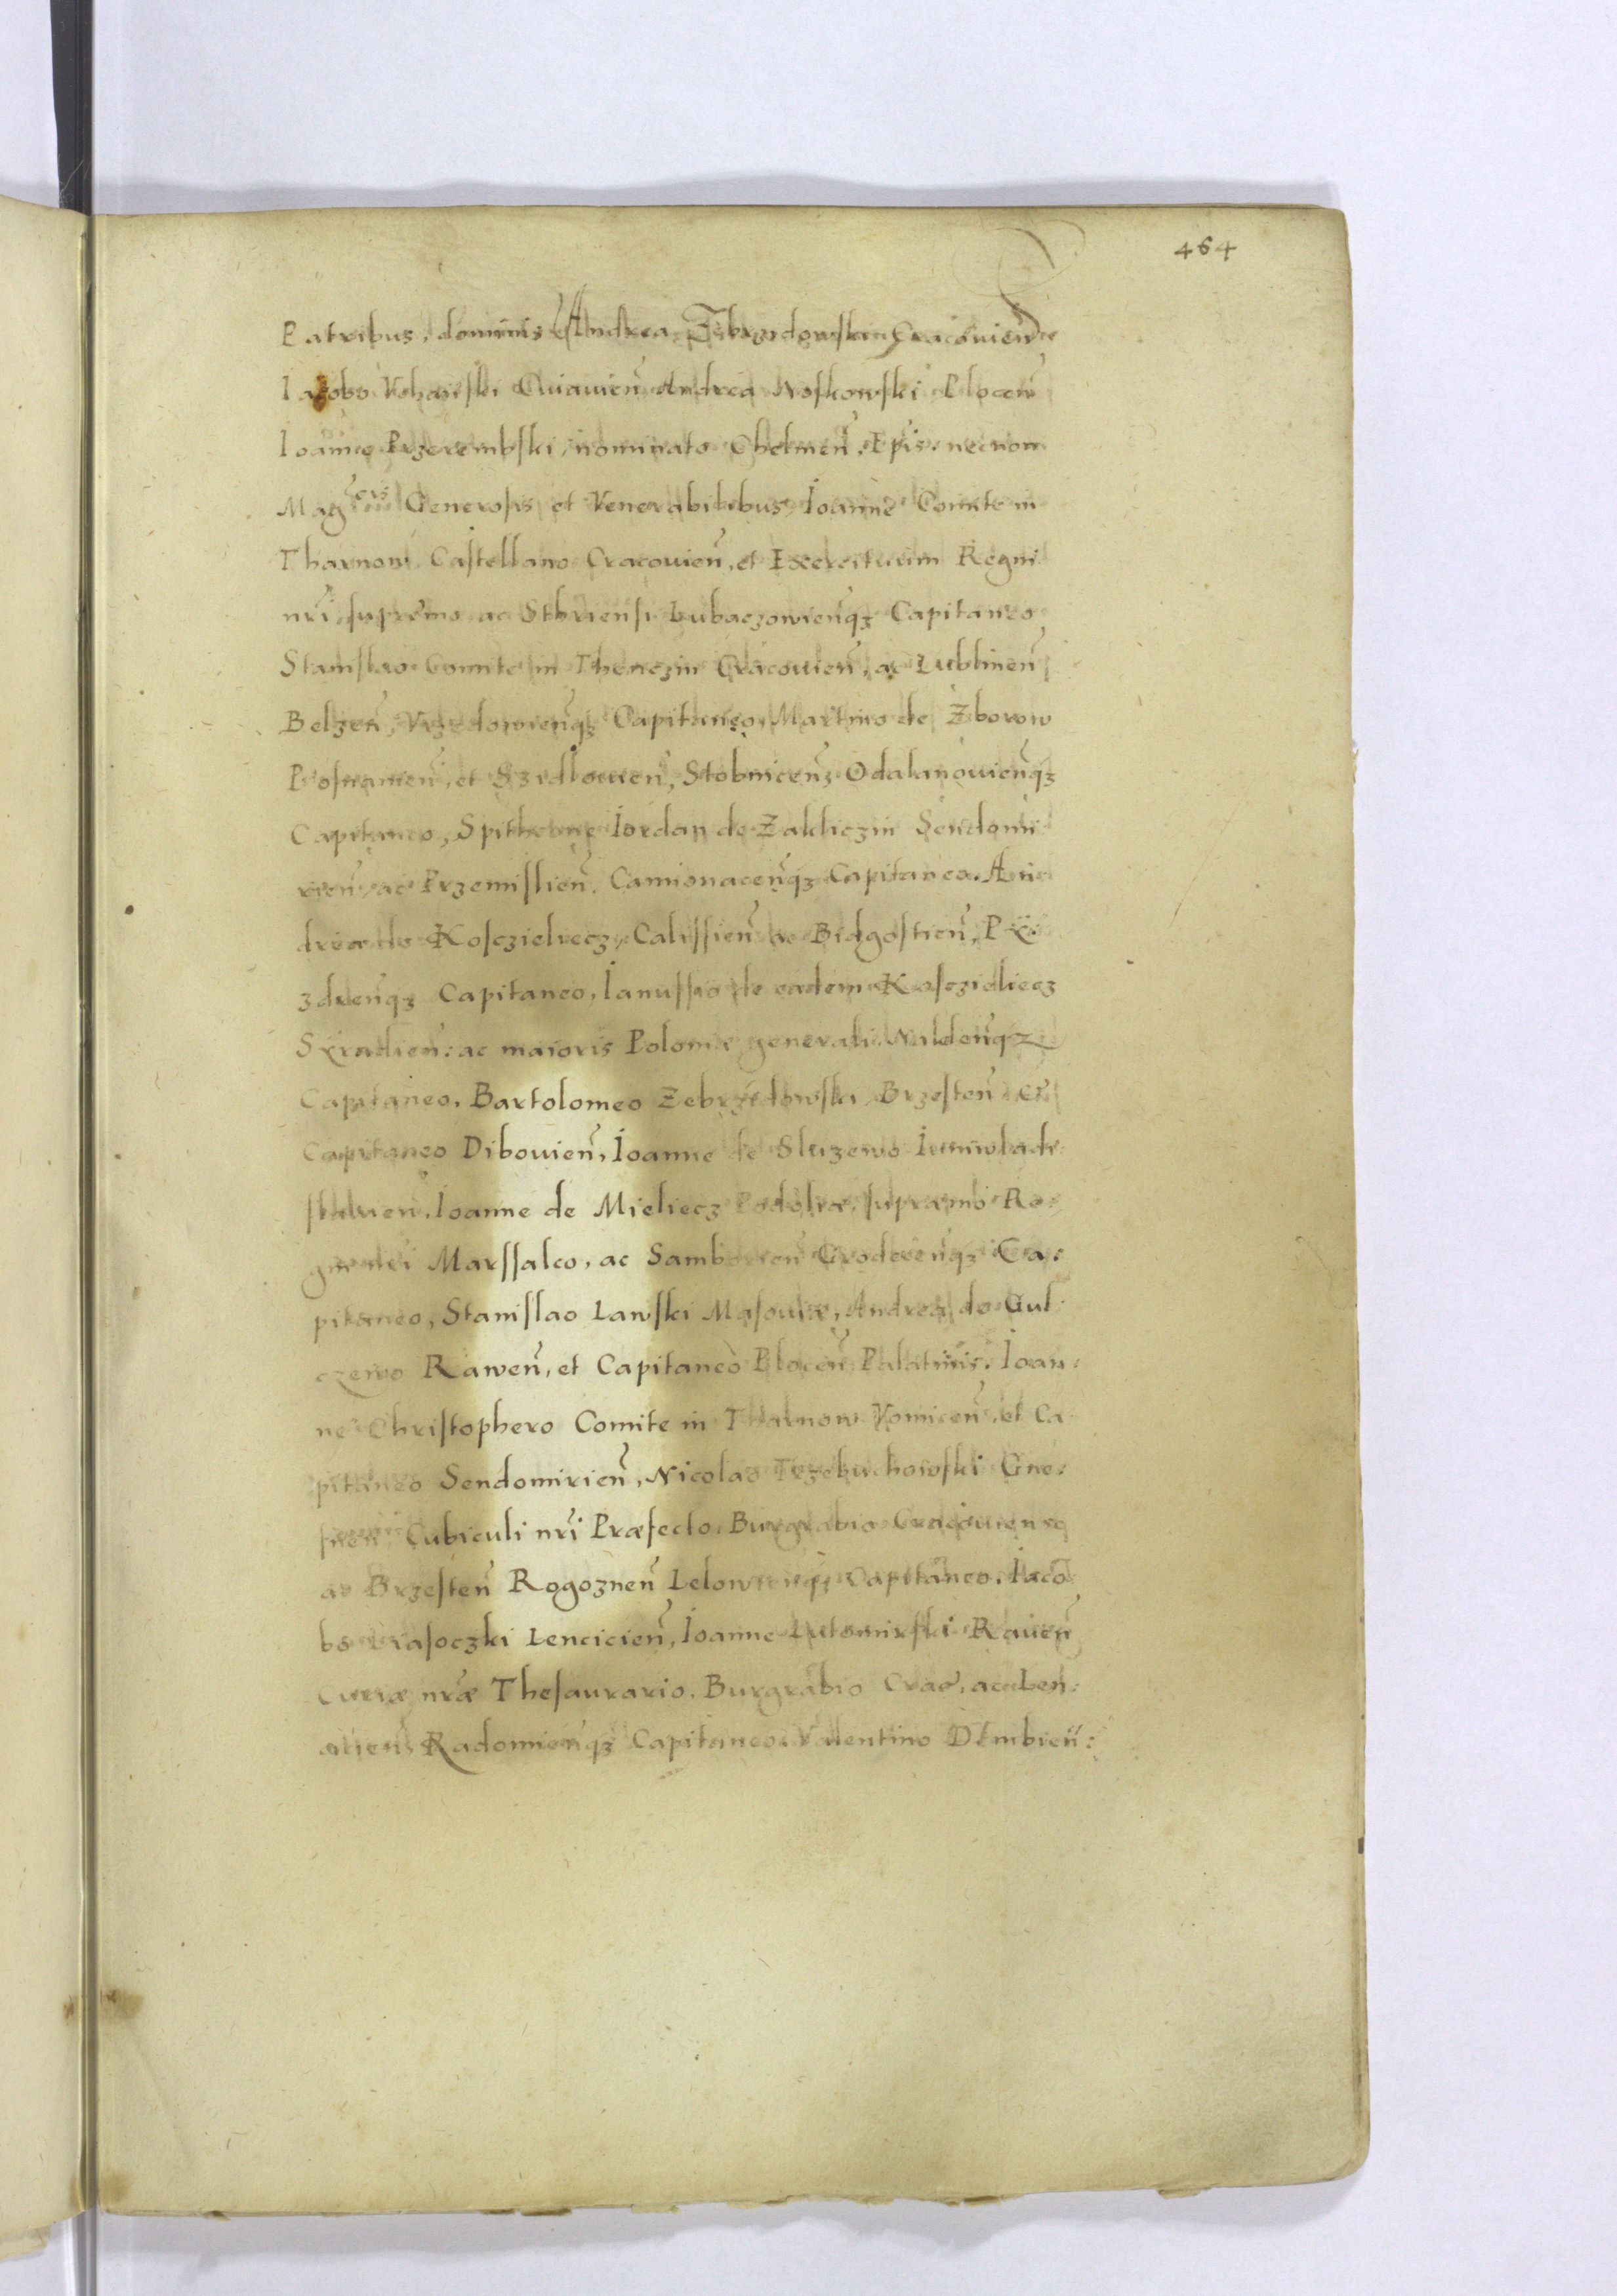 464
Patribus, dominis Andrea Zebrzidowski Cracouien̄
Iacobo Vchański Cuiauien̄ Andrea Noskowski Plocen̄
Ioanne Przerembski, nominato Chelmen̄. Ep̄is. necnon
Mag̃cis Generosis et Venerabilibus, Ioanne Comite in
Tharnow Castellano Cracouien̄, et Exercituum Regni
nr̄i supremo ac Striensi Lubaczowien̄qꝫ Capitaneo
Stanislao Comite in Thenczin Cracouien̄, ac Lublinen̄
Belzen̄, Vrzedowien̄qꝫ Capitaneo, Martino de Zborow
Posnanien̄, et Szidlouien̄, Stobnicen̄, Odalanouien̄qꝫ
Capitaneo, Spithkone Iordan de Zakliczin Sendomi
rien̄, ac Przemislien̄. Camionacen̄qꝫ Capitaneo. An
drea de Kosczieliecz, Calissien̄ ac Bidgostien̄, Pÿ
zdren̄qꝫ Capitaneo, Ianussio de eadem Kosczieliecz
Syradien̄: ac maioris Poloniæ generali Nakden̄qꝫ
Capitaneo. Bartolomeo Zebrzidowski Brzesten̄ et
Capitaneo Dibouien̄, Ioanne de Sluzewo Iuniwladi
slauien̄. Ioanne de Mieliecz Podoliæ, supræmo Re:
gni nr̄i Marssalco, ac Samborien̄ Grodecen̄qꝫ Ca:
pitaneo, Stanislao Lawski Masouiæ, Andrea de Gul
czewo Rawen̄, et Capitaneo Plocen̄ Palatinis. Ioan:
ne Christophero Comite in Tharnow Voinicen̄, et Ca
pitaneo Sendomirien̄, Nicolao Trzebuchowski Gne:
snen̄ Cubiculi nr̄i Præfecto. Burgrabio Cracouiensi
ac Brzesten̄ Rogoznen̄ Lelowien̄qꝫ Capitaneo. Iaco
bo Liasoczki Lencicien̄, Ioanne Lutomirski Rauen̄
Curiæ nr̄æ Thesaurario. Burgrabio Craco.
Radomien̄qꝫ Capitaneo. Valentino Dembien̄: